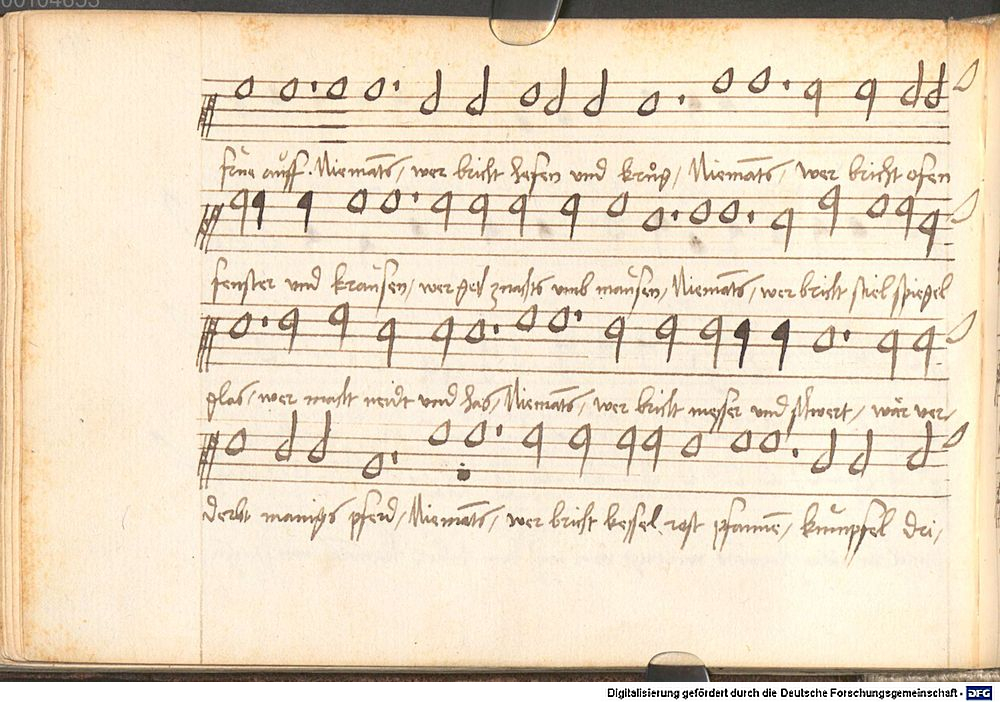 00104655
früe auff. Niemāts / wer bricht hefen und krůg / Niemāts / wer bricht ofen
fenster und kraüsen / wer get znachts umb maüsen / Niemāts / wer bricht stiel spiegel
glas / wer macht neidt und has / Niemāts / wer bricht messer und schwert / wär ver-
derbt manigs pferd / Niemāts / wer bricht kessel rost pfannē / knüpfel dri /
Digitalisierung gefördert durch die Deutsche Forschungsgemeinschaft - DFG